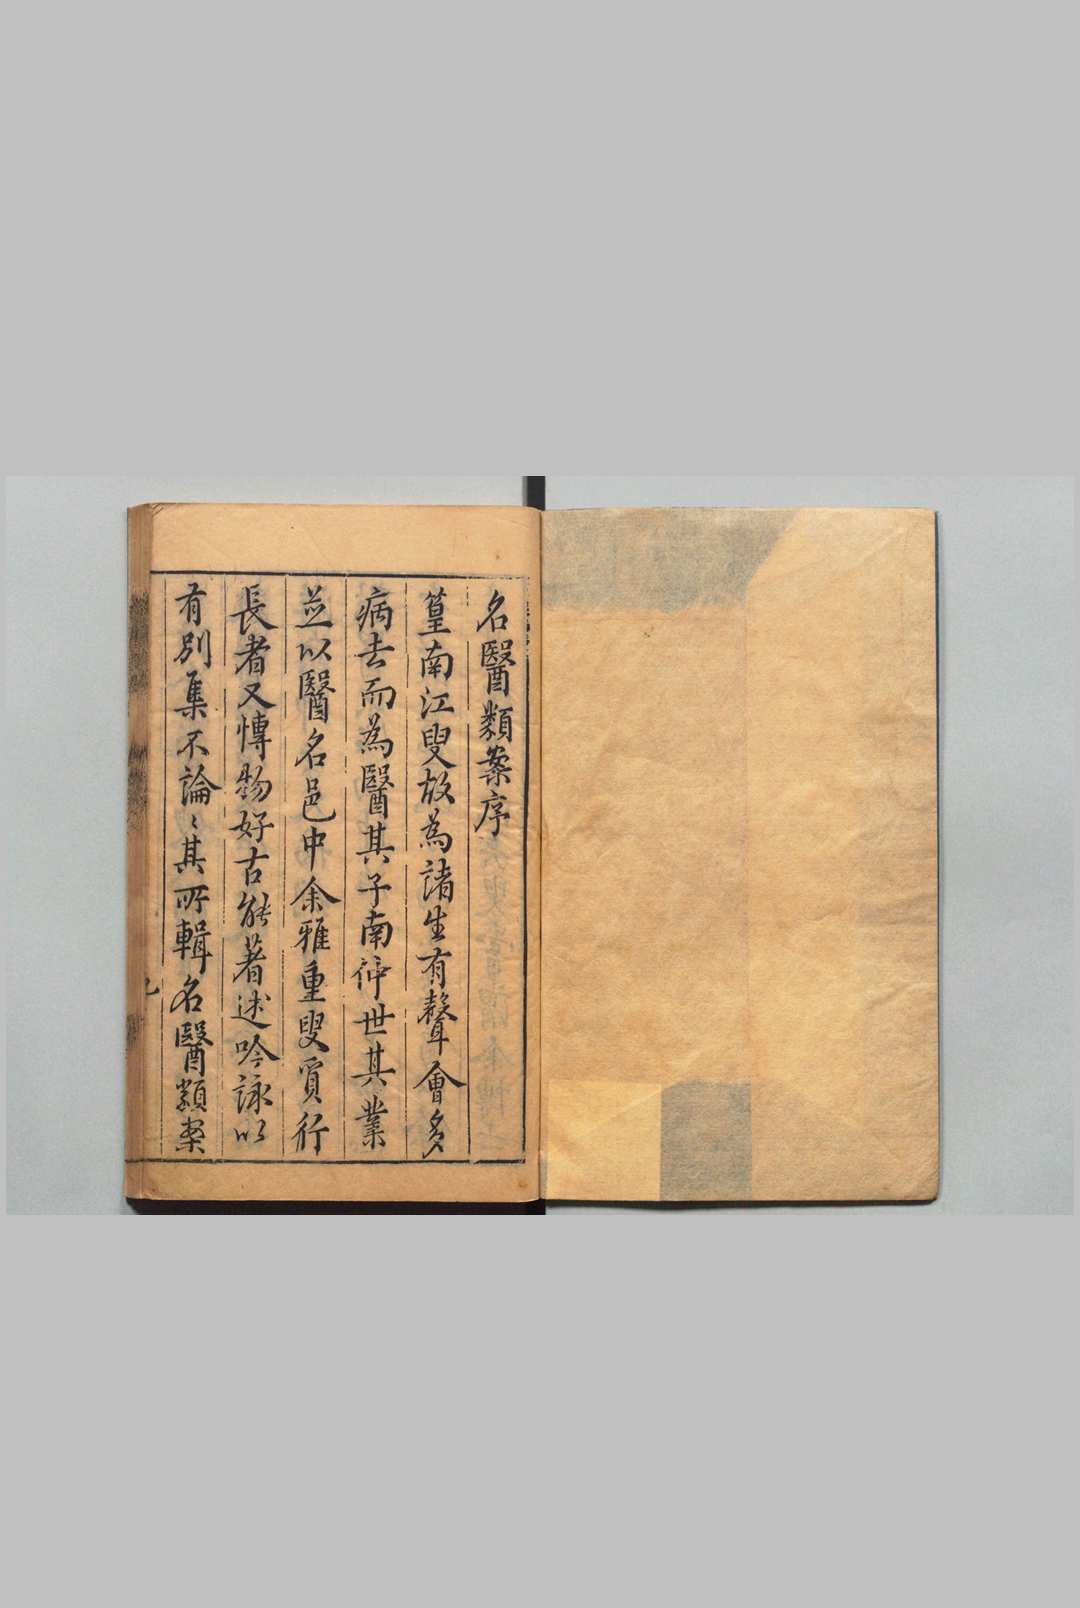 名醫類案序
篁南江叟故為諸生有聲會多
病去而為醫其子南仲世其業
並以醫名邑中余雅重叟質行
長者又愽物好古能著述吟詠以
有別集不論〻其所輯名醫類案